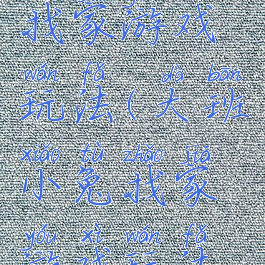 找家游戏
wán fǎ dà bān
玩法(大班
xiǎo tù zhǎo jiā
小兔找家
yóu xì wán fǎ
游戏玩法